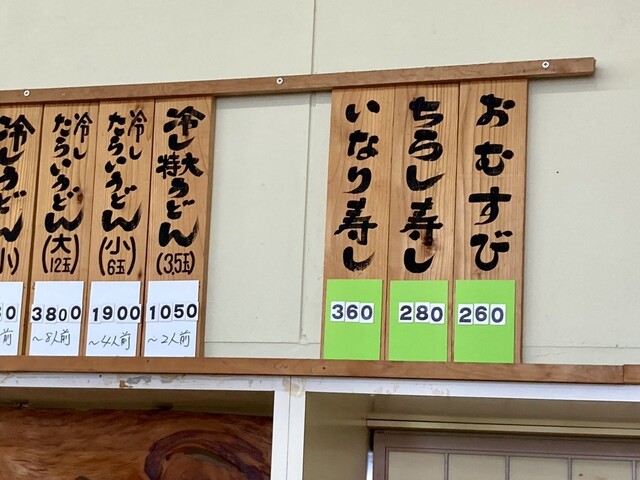 おむすび
260
ちらし寿し
280
いなり寿し
360
冷し特大うどん
(3,5玉)
1050
〜2人前
冷し
たらいうどん
(小6玉)
1900
〜4人前
冷し
たらいうどん
(大12玉)
3800
〜8人前
冷し
小)
0
前